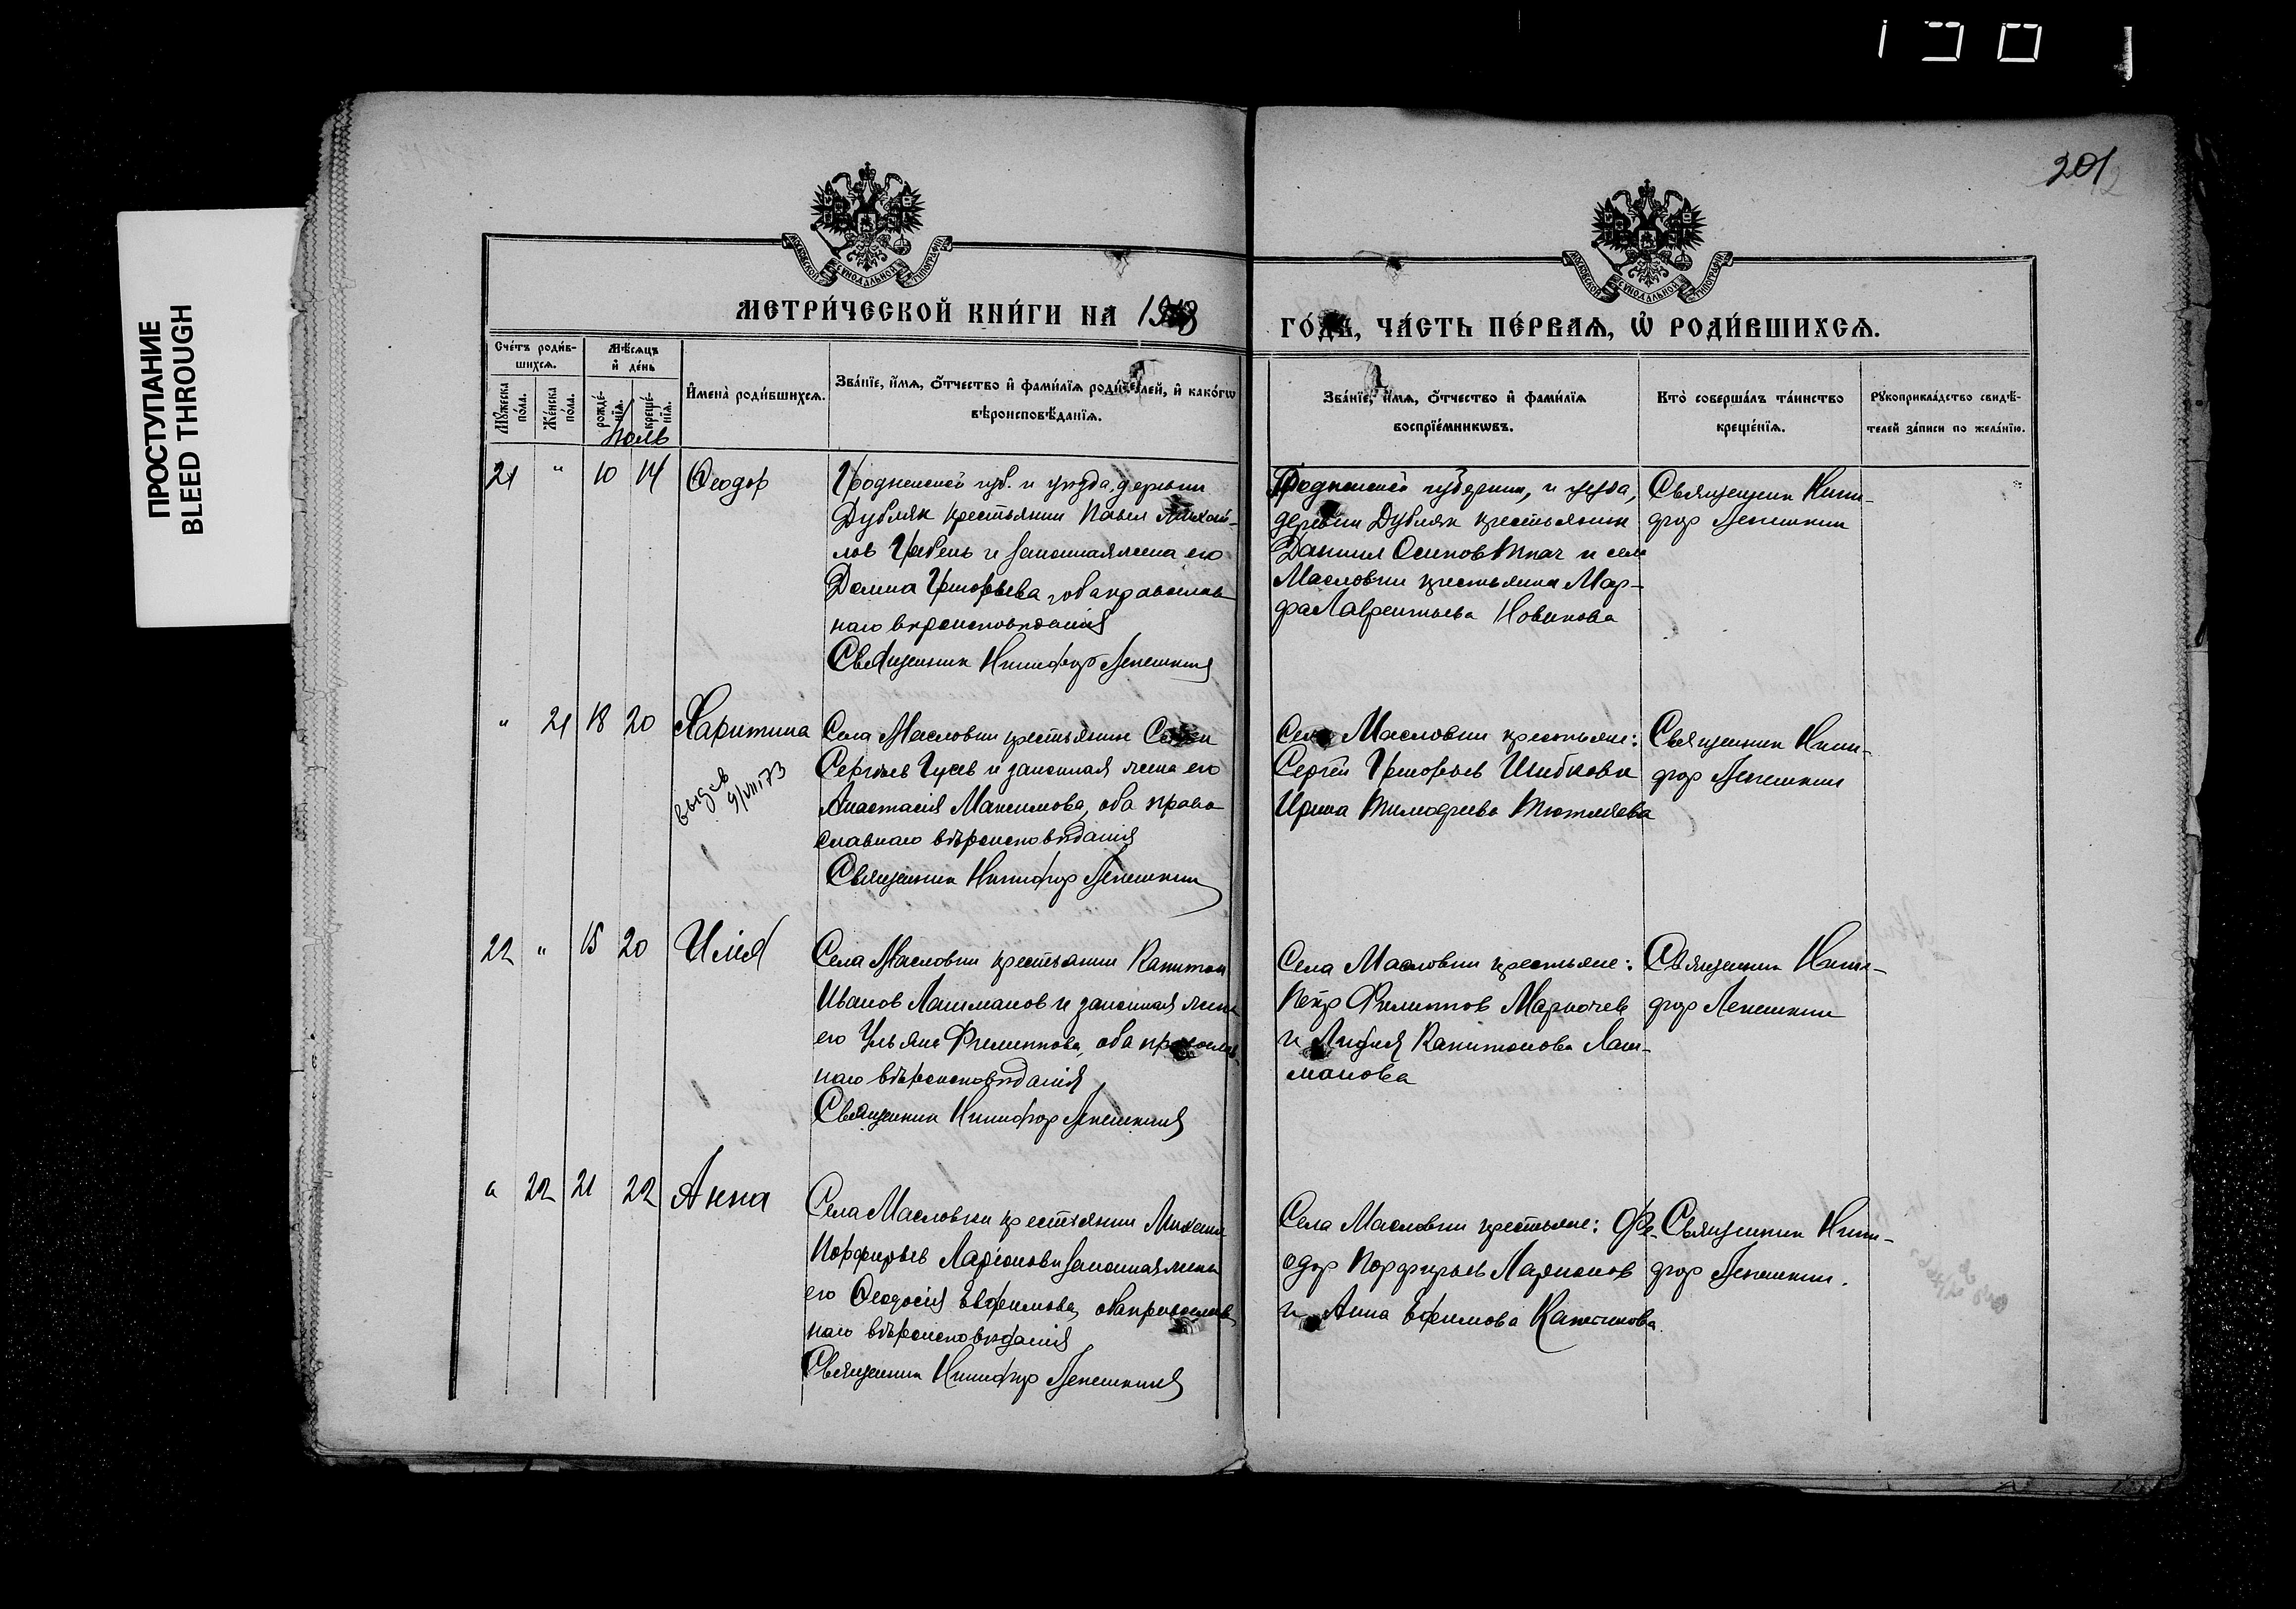 201
ПРОСТУПАНИЕ
BLEED THROUGH
МОСКОВСКОЙ СѴНОДАЛЬНОЙ ТИПОГРАФІИ
МОСКОВСКОЙ СѴНОДАЛЬНОЙ ТИПОГРАФІИ
МЕТРИ́ЧЕСКОЙ КНИ́ГИ НА 1918
ГО́ДЪ, ЧА́СТЬ ПЕ́РВАѦ, Ѡ҆ РОДИ́ВШИХСѦ.
Сче́тъ роди́в-
шихсѧ.
Мꙋ́жеска
по́ла.
Же́нска
по́ла.
Мѣ́сѧцъ
и҆ де́нь
рожде́-
нїѧ.
креще́-
нїѧ.
И҆мена̀ роди́вшихсѧ.
Зва́нїе, и҆́мѧ, ѻ҆́тчество и҆ фами́лїѧ роди́телей, и҆ како́гѡ
вѣроисповѣ́данїѧ.
Зва́нїе, и҆́мѧ, ѻ҆́тчество и҆ фами́лїѧ
воспрїе́мникѡвъ.
Кто̀ соверша́лъ та́инство
креще́нїѧ.
Рꙋкоприкла́дство свидѣ́-
телей за́писи по жела́нїю.
Июль
21 " 10 14 Ѳеодор
Гродненской губ. и уезда, деревни
Дубляк крестьянин Павел Михай-
лов Грабень и законная жена его
Домна Григорьева, оба православ-
наго вероисповедания
Священник Никифор Лепешкин
Гродненской губернии, и уезда,
деревни Дубляк крестьянин
Даниил Осипов Ткач и села
Масловки крестьянка Мар-
фа Лаврентьева Новикова
Священник Ники-
фор Лепешкин
" 21 18 20 Харитина
выдав
9/VII 73
Села Масловки крестьянин
Сергѣев Гусев и законная жена его
Анастасія Максимова, оба право-
славнаго вѣроисповѣданія
Священник Никифор Лепешкин
Села Масловки крестьяне:
Сергѣй Григорьев Шибков и
Ирина Тимофеева Тютляева
Священник Ники-
фор Лепешкин
22 " 15 20 Илія
Села Масловки крестьянин Капитон
Иванов Лашманов и законная жена
его Ульяна Филиппова, оба православ-
наго вѣроисповѣданія
Священник Никифор Лепешкин
Села Масловки крестьяне:
Петр Филиппов Марночев
и Лидия Капитонова Лаш-
манова
Священник Ники-
фор Лепешкин
" 22 21 22 Анна
Села Масловки крестьянин Михаил
Порфирьев Ларіонов и законная жена
его Ѳеодосія Евфимова, оба православ-
наго вѣроисповѣданія
Священник Никифор Лепешкин
Села Масловки крестьяне: Фе-
одор Порфирьев Ларионов
и Анна Ефимова
Священник Ники-
фор Лепешкин.